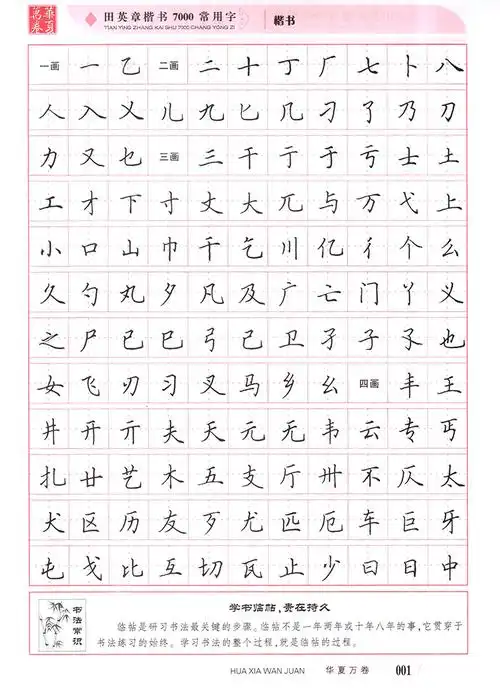 華夏
萬卷
田英章楷书7000常用字
TIAN YING ZHANG KAI SHU 7000 CHANG YONG ZI
楷书
一画 一 乙 二画 二 十 丁 厂 七 卜 八
人 入 乂 儿 九 匕 几 刁 了 乃 刀
力 又 乜 三画 三 干 亍 于 亏 士 土
工 才 下 寸 丈 大 兀 与 万 弋 上
小 口 山 巾 千 乞 川 亿 彳 个 么
久 勺 丸 夕 凡 及 广 亡 门 丫 义
之 尸 已 巳 弓 己 卫 孑 子 孓 也
女 飞 刃 习 叉 马 乡 幺 四画 丰 王
井 开 亓 夫 天 元 无 韦 云 专 丐
扎 廿 艺 木 五 支 厅 卅 不 仄 太
犬 区 历 友 歹 尤 匹 厄 车 巨 牙
屯 戈 比 互 切 瓦 止 少 曰 日 中
书法常识
学书临帖,贵在持久
临帖是研习书法最关键的步骤。临帖不是一年两年或十年八年的事,它贯穿于
书法练习的始终。学习书法的整个过程,就是临帖的过程。
HUA XIA WAN JUAN 华夏万卷 001